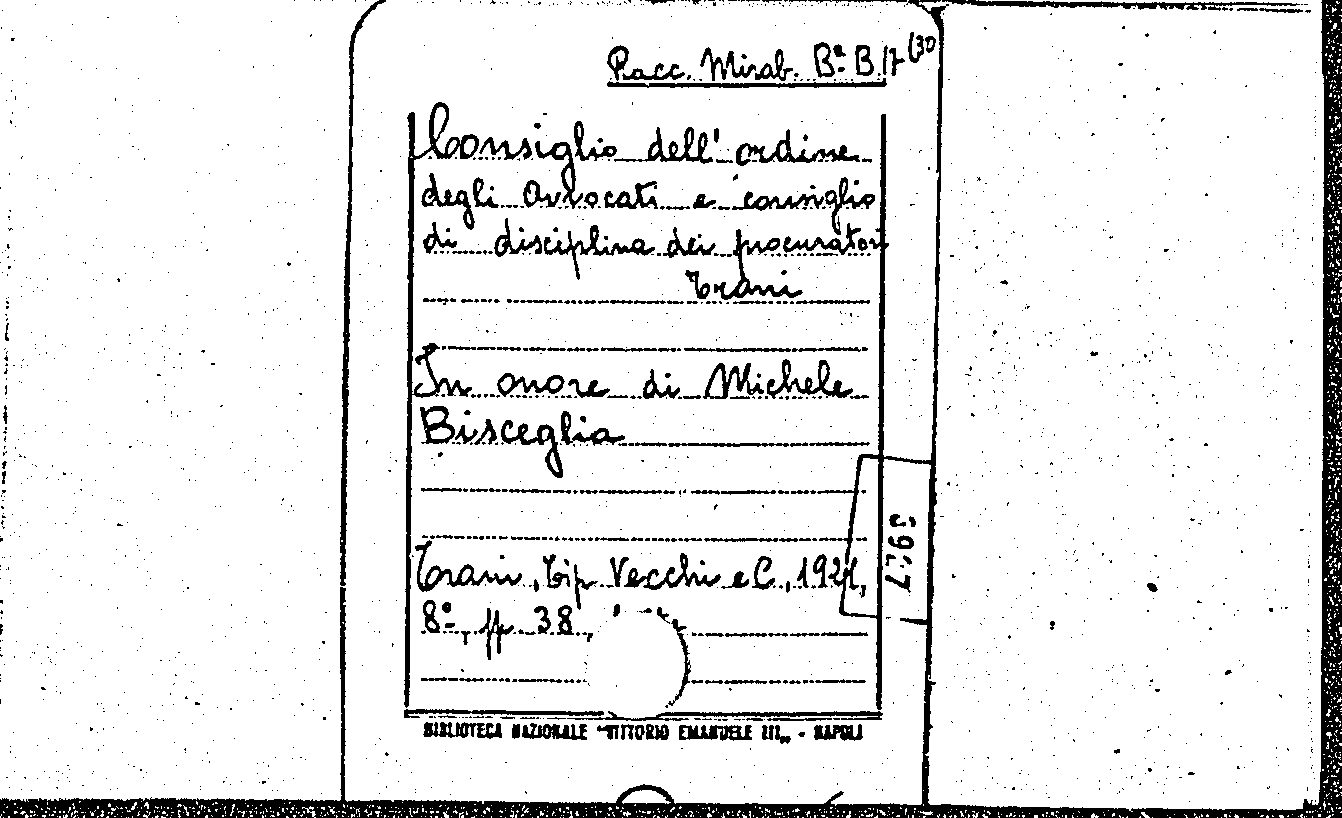 Racc. Mirab. Bª B 17 (30
Consiglio dell' ordine
degli Avvocati e consiglio
di disciplina dei procuratori
Trani
In onore di Michele
Bisceglia
Trani, Tip Vecchi e C., 1921,
8º, pp. 38,
BIBLIOTECA NAZIONALE "VITTORIO EMANUELE III„ - NAPOLI